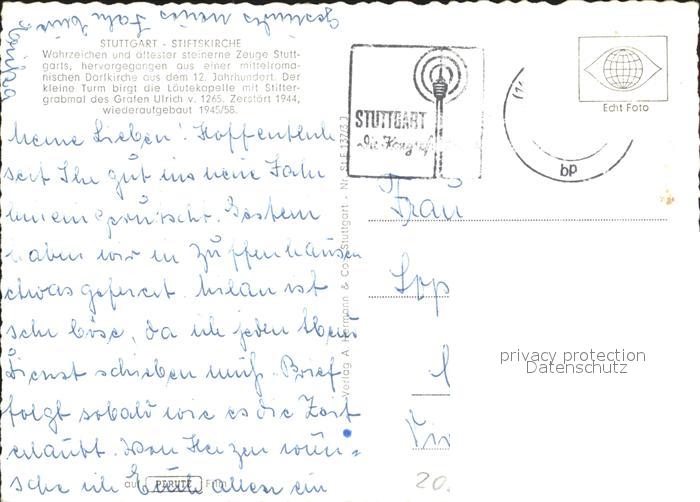 STUTTGART - STIFTSKIRCHE
Wahrzeichen und ältester steinerne Zeuge Stutt-
garts, hervorgegangen aus einer mittelroma-
nischen Dorfkirche aus dem 12. Jahrhundert. Der
kleine Turm birgt die Läutekapelle mit Stifter-
grabmal des Grafen Ulrich v. 1265. Zerstört 1944,
wiederaufgebaut 1945/58.
Meine Lieben! Hoffentlich
seit Ihr gut ins neue Jahr
hineingerutscht. Gestern
haben wir in Zuffenhausen
etwas gefeiert. Milan ist
sehr böse, da ich jeden Abend
Dienst schieben muß. Brief
folgt sobald wie es die Zeit
erlaubt. Von Herzen wün-
sche ich Euch allen ein
gesundes neues Jahr Eure
Monika
auf PERUTZ Film
Verlag A. Hermann & Co., Stuttgart - Nr. St. F
STUTTGART
Die
bp
Echt Foto
Frau
privacy protection
Datenschutz
20.